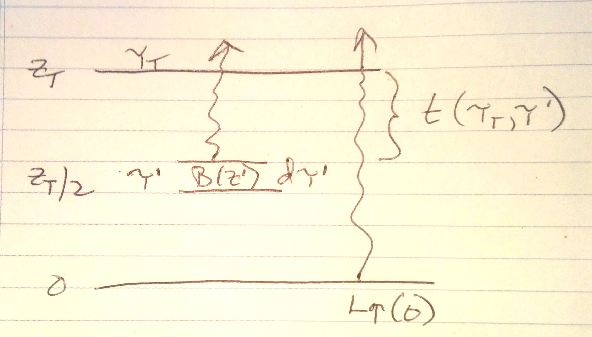 z_T τ_T
t(τ_T, τ')
z_T/2 τ' B(z') dτ'
0
L↑(0)